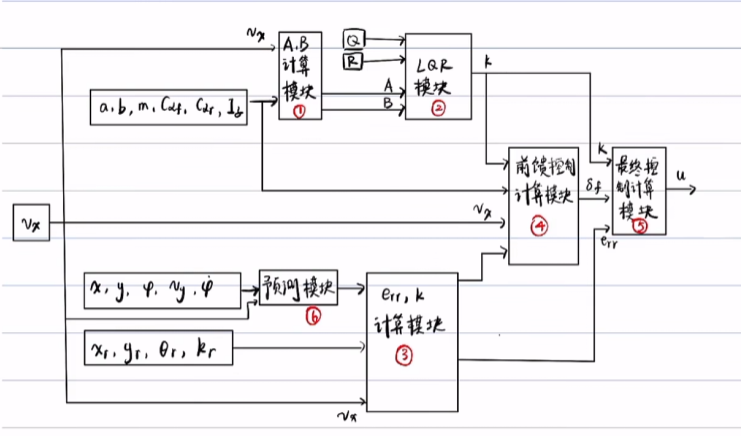 vx
A.B
计算
模块
①
Q
R
A
B
LQR
模块
②
k
a, b, m, Cαf, Cαr, Iz
前馈控制
计算模块
④
k
δf
最终控
制计算
模块
⑤
u
err
vx
vx
x, y, φ, vy, φ̇
预测模块
⑥
err, k
计算模块
③
xr, yr, θr, kr
vx